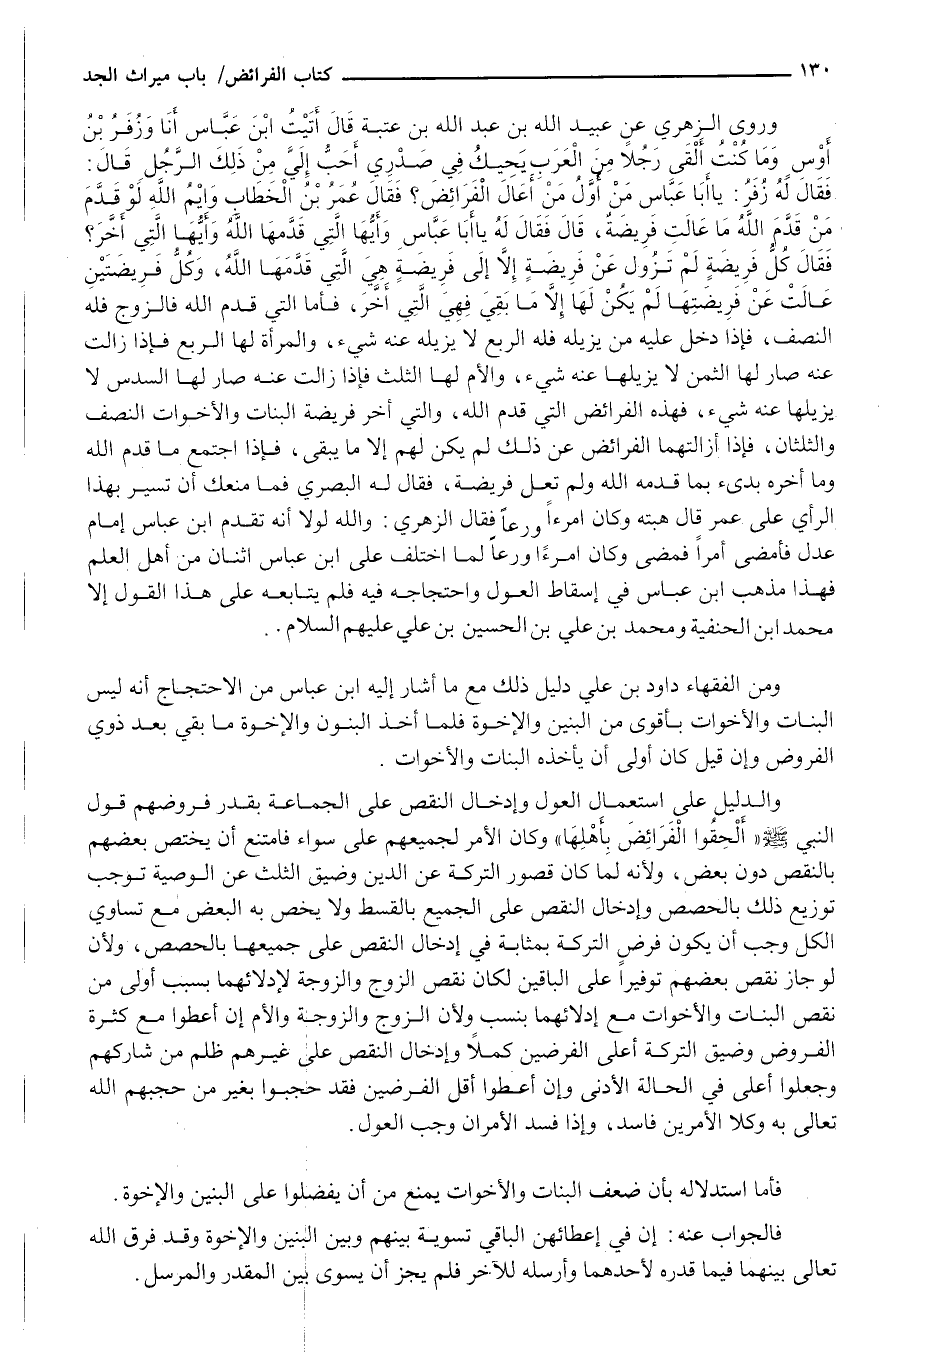 ١٣٠ كتاب الفرائض/ باب ميراث الجد
وروي الزهري عن عبيد الله بن عبد الله بن عتبة قال أَتَيْتُ ابْنَ عَبَّاس أَنَا وَزُفَرُ بْنُ
أَوْسٍ وَمَا كُنْتُ أَلْقَى رَجُلاً مِنَ الْعَرَبِ يَحِيكُ فِي صَدْرِي أَحَبُّ إِلَيَّ مِنْ ذَلِكَ الرَّجُلِ قَالَ:
فَقَالَ لَهُ زُفَرُ: ياأبَا عَبَّاس مَنْ أَوَّلُ مَنْ أَعَالَ الْفَرَائِضَ؟ فَقَالَ عُمَرُ بْنُ الْخَطَابِ وَايْمُ اللَّهِ لَوْ قَدَّمَ
مَنْ قَدَّمَ اللَّهُ مَا عَالَتِ فَرِيضَةٌ، قَالَ فَقَالَ لَهُ ياأبَا عَبَّاس وَأَيُّهَا الَّتِي قَدَّمَهَا اللَّهُ وَأَيُّهَا الَّتِي أَخَّرَ؟
فَقَالَ كُلُّ فَرِيضَةٍ لَمْ تَزُول عَنْ فَرِيضَةٍ إِلَّا إِلَى فَرِيضَةٍ هِيَ الَّتِي قَدَّمَهَا اللَّهُ، وَكُلُّ فَرِيضَتَيْنِ
عَالَتْ عَنْ فَرِيضَتِهَا لَمْ يَكُنْ لَهَا إِلَّا مَا بَقِيَ فَهِيَ الَّتِي أَخَّرَ، فأما التي قدم الله فالزوج فله
النصف، فإذا دخل عليه من يزيله فله الربع لا يزيله عنه شيء، والمرأة لها الربع فإذا زالت
عنه صار لها الثمن لا يزيلها عنه شيء، والأم لها الثلث فإذا زالت عنه صار لها السدس لا
يزيلها عنه شيء، فهذه الفرائض التي قدم الله، والتي أخر فريضة البنات والأخوات النصف
والثلثان، فإذا أزالتهما الفرائض عن ذلك لم يكن لهم إلا ما يبقى، فإذا اجتمع ما قدم الله
وما أخره بدىء بما قدمه الله ولم تعل فريضة، فقال له البصري فما منعك أن تسير بهذا
الرأي على عمر قال هبته وكان امرءاً ورعاً فقال الزهري: والله لولا أنه تقدم ابن عباس إمام
عدل فأمضى أمراً فمضى وكان امرءًا ورعاً لما اختلف على ابن عباس اثنان من أهل العلم
فهذا مذهب ابن عباس في إسقاط العول واحتجاجه فيه فلم يتابعه على هذا القول إلا
محمد ابن الحنفية ومحمد بن علي بن الحسين بن علي عليهم السلام. .
ومن الفقهاء داود بن علي دليل ذلك مع ما أشار إليه ابن عباس من الاحتجاج أنه ليس
البنات والأخوات بأقوى من البنين والإخوة فلما أخذ البنون والإخوة ما بقي بعد ذوي
الفروض وإن قيل كان أولى أن يأخذه البنات والأخوات .
والدليل على استعمال العول وإدخال النقص على الجماعة بقدر فروضهم قول
النبي ﷺ «أَلْحِقُوا الْفَرَائِضَ بِأَهْلِهَا» وكان الأمر لجميعهم على سواء فامتنع أن يختص بعضهم
بالنقص دون بعض، ولأنه لما كان قصور التركة عن الدين وضيق الثلث عن الوصية توجب
توزيع ذلك بالحصص وإدخال النقص على الجميع بالقسط ولا يخص به البعض مع تساوي
الكل وجب أن يكون فرض التركة بمثابة في إدخال النقص على جميعها بالحصص، ولأن
لو جاز نقص بعضهم توفيراً على الباقين لكان نقص الزوج والزوجة لإدلائهما بسبب أولى من
نقص البنات والأخوات مع إدلائهما بنسب ولأن الزوج والزوجة والأم إن أعطوا مع كثرة
الفروض وضيق التركة أعلى الفرضين كملاً وإدخال النقص على غيرهم ظلم من شاركهم
وجعلوا أعلى في الحالة الأدنى وإن أعطوا أقل الفرضين فقد حجبوا بغير من حجبهم الله
تعالى به وكلا الأمرين فاسد، وإذا فسد الأمران وجب العول.
فأما استدلاله بأن ضعف البنات والأخوات يمنع من أن يفضلوا على البنين والإخوة.
فالجواب عنه: إن في إعطائهن الباقي تسوية بينهم وبين البنين والإخوة وقد فرق الله
تعالى بينهما فيما قدره لأحدهما وأرسله للآخر فلم يجز أن يسوى بين المقدر والمرسل.